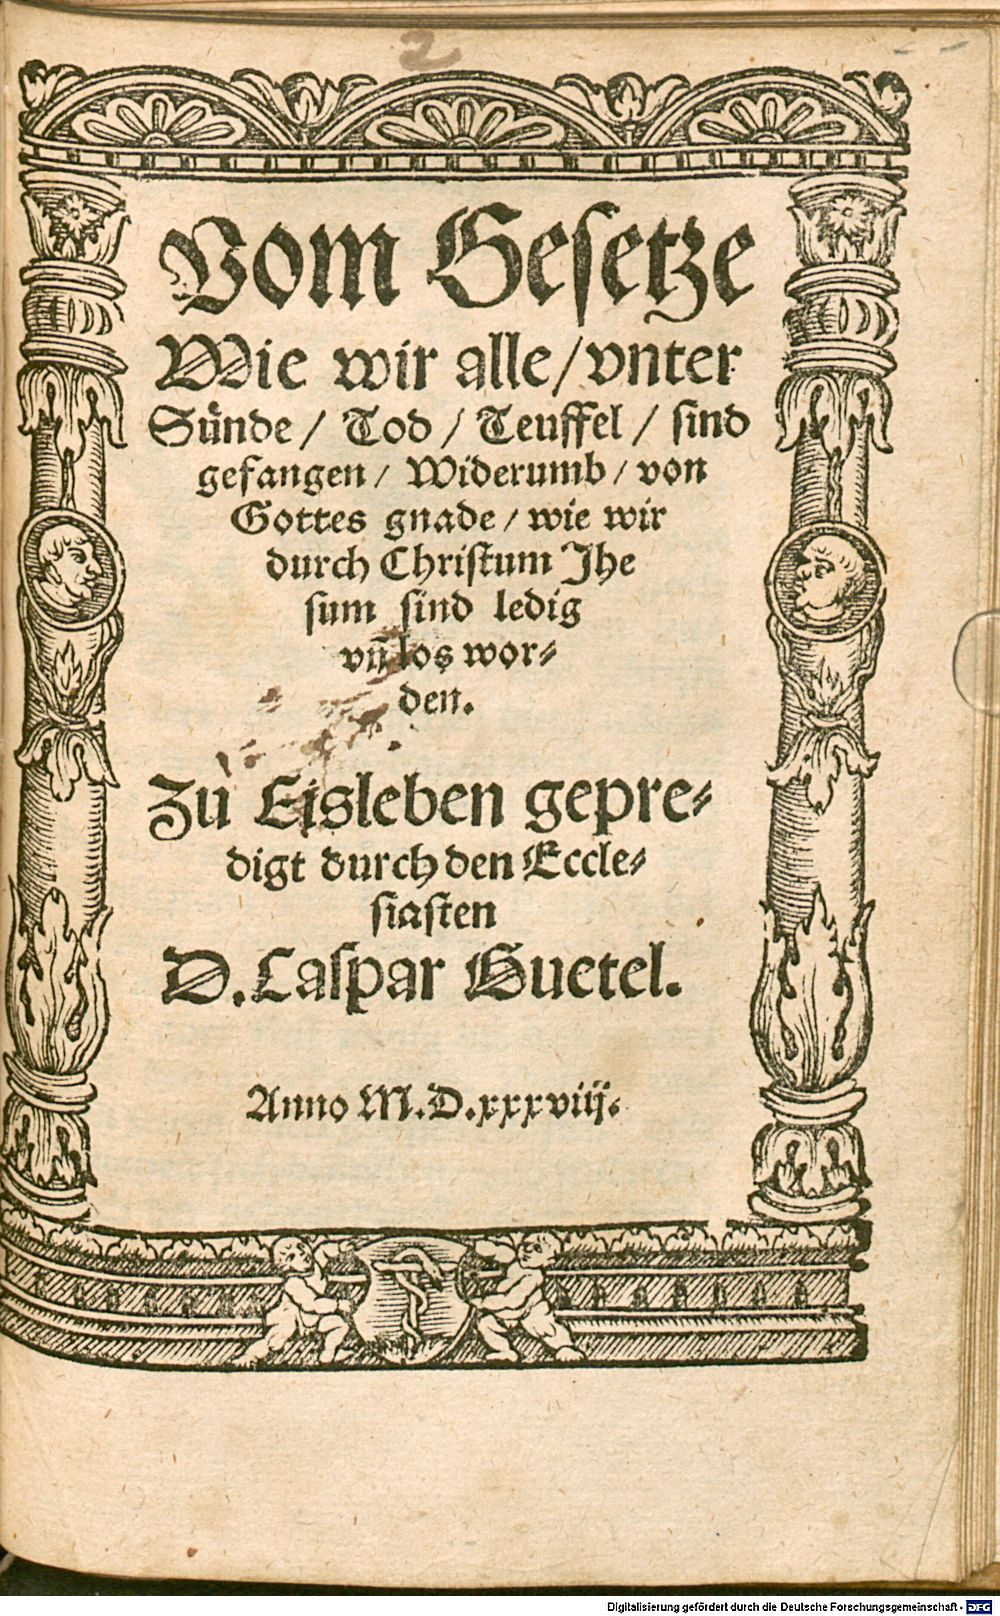 2
Vom Gesetze
Wie wir alle / vnter
Sünde / Tod / Teuffel / sind
gefangen / Widerumb / von
Gottes gnade / wie wir
durch Christum Jhe
sum sind ledig
vñ los wor⸗
den.
Zu Eisleben gepre⸗
digt durch den Eccle⸗
siasten
D. Caspar Guetel.
Anno M.D.xxxviij.
Digitalisierung gefördert durch die Deutsche Forschungsgemeinschaft - DFG